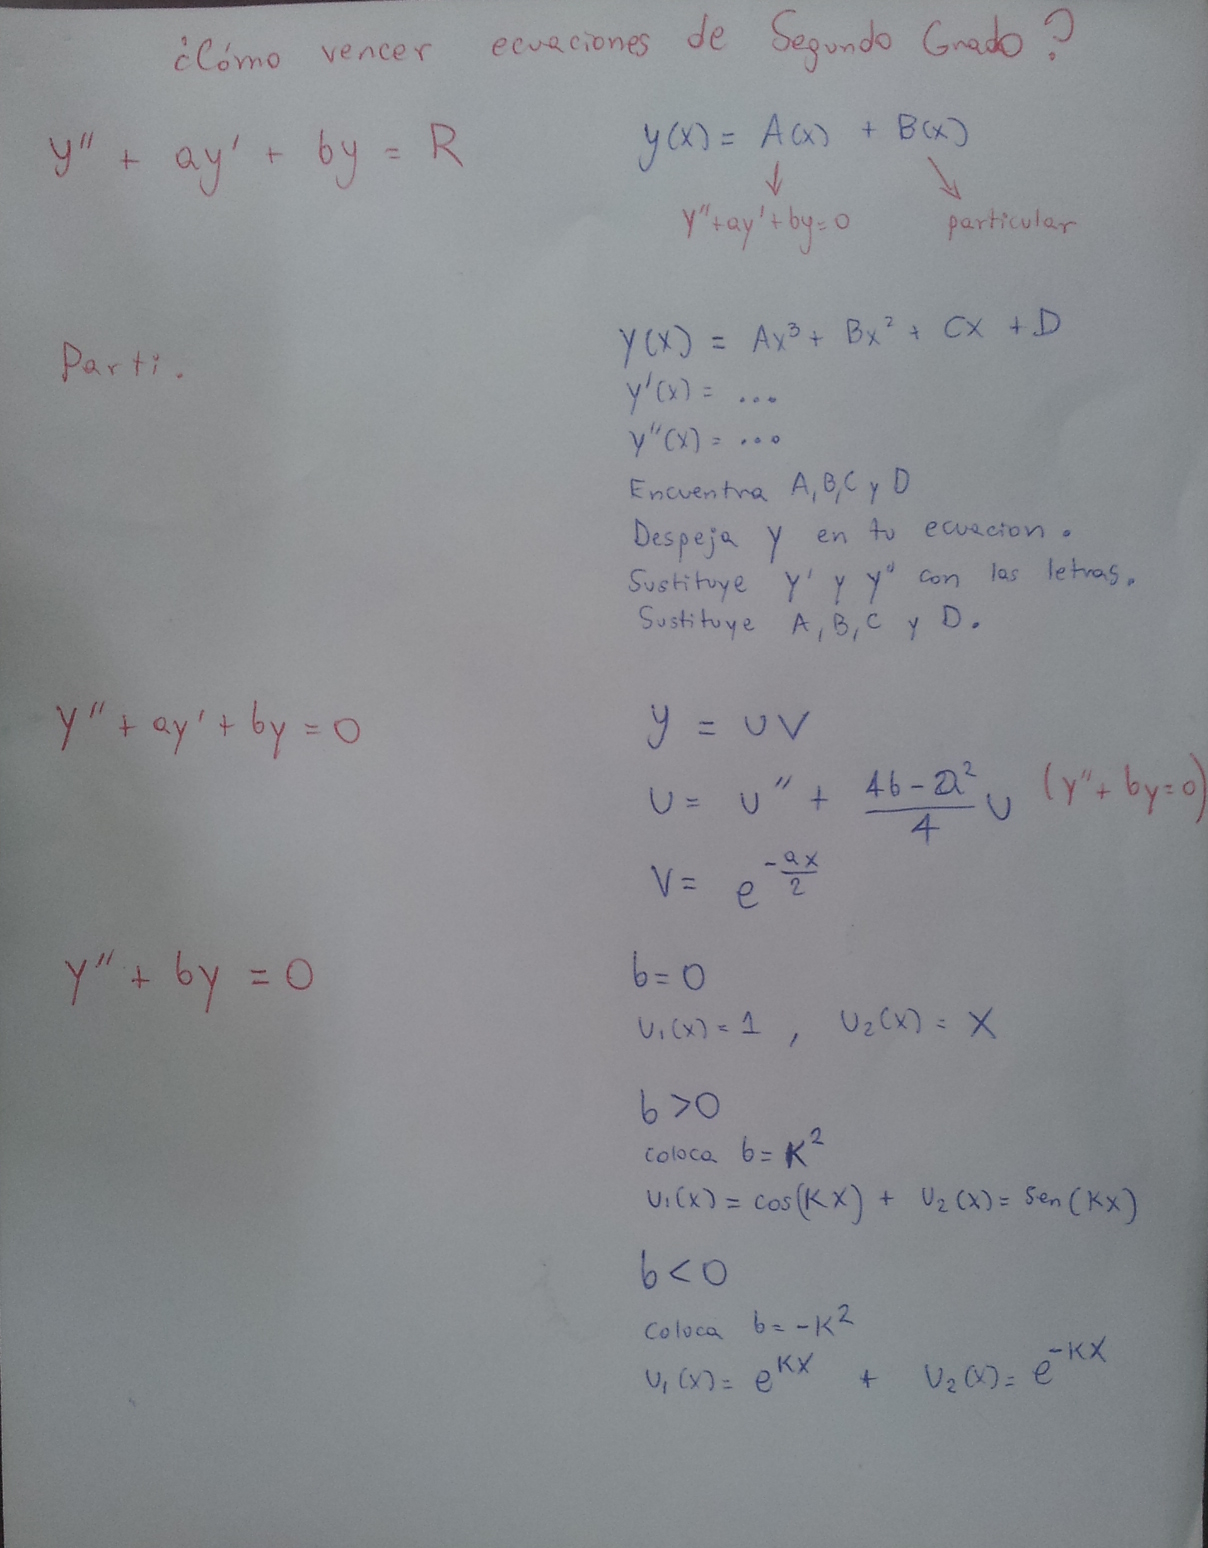 ¿Cómo vencer ecuaciones de Segundo Grado?
y'' + ay' + by = R
y(x) = A(x) + B(x)
y''+ay'+by=0 particular
Parti.
y(x) = Ax³ + Bx² + Cx + D
y'(x) = ...
y''(x) = ...
Encuentra A, B, C y D
Despeja y en tu ecuacion.
Sustituye y' y y'' con las letras.
Sustituye A, B, C y D.
y'' + ay' + by = 0
y = uv
u = u'' + \frac{4b - a²}{4} u (y'' + by = 0)
v = e^{-\frac{ax}{2}}
y'' + by = 0
b = 0
u₁(x) = 1 , u₂(x) = x
b > 0
coloca b = k²
u₁(x) = cos(kx) + u₂(x) = sen(kx)
b < 0
coloca b = -k²
u₁(x) = e^{kx} + u₂(x) = e^{-kx}